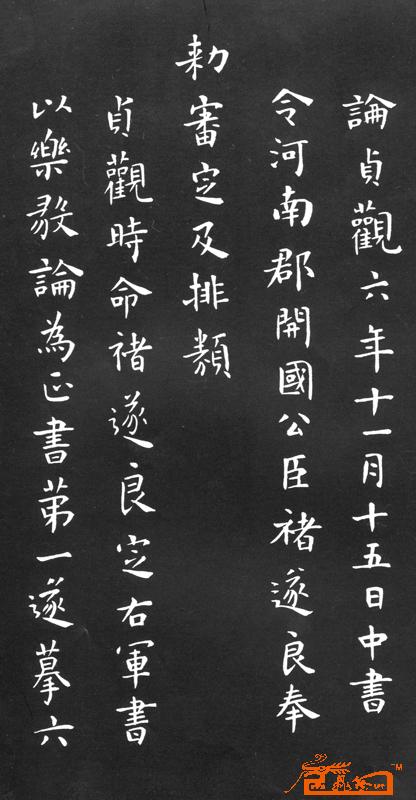 論貞觀六年十一月十五日中書
令河南郡開國公臣褚遂良奉
勑審定及排類
貞觀時命褚遂良定右軍書
以樂毅論為正書第一遂摹六